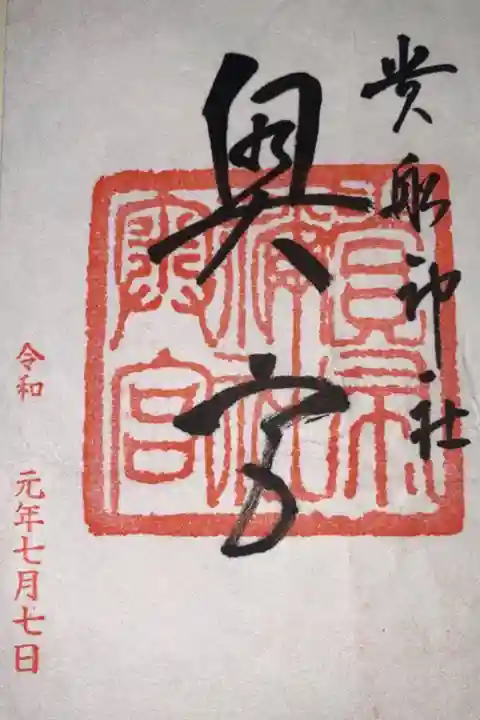 貴船神社
奥宮
令和 元年七月七日